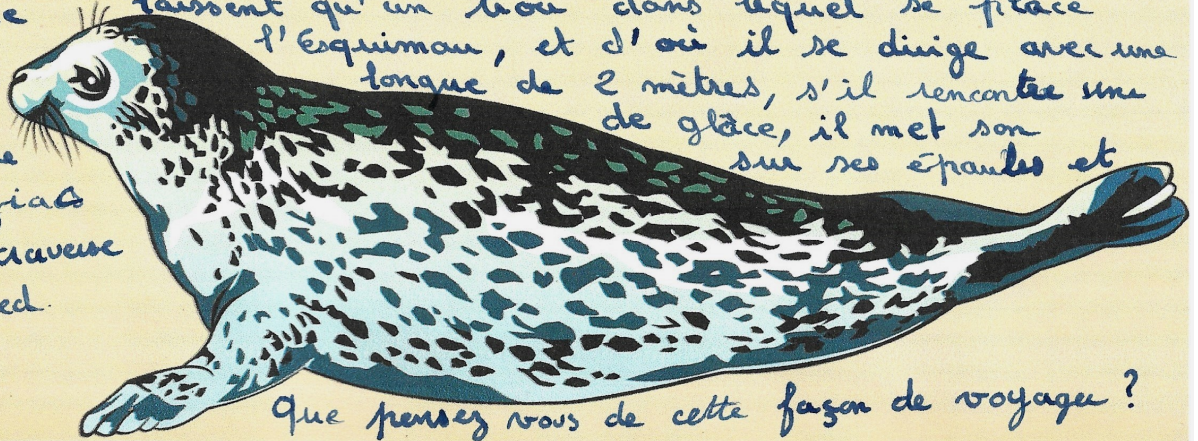 laissent qu'un trou dans lequel se place
l'Esquimau, et d'où il se dirige avec une
longue de 2 mètres, s'il rencontre une
de glâce, il met son
sur ses épaules et
traverse
Que pensez vous de cette façon de voyager ?